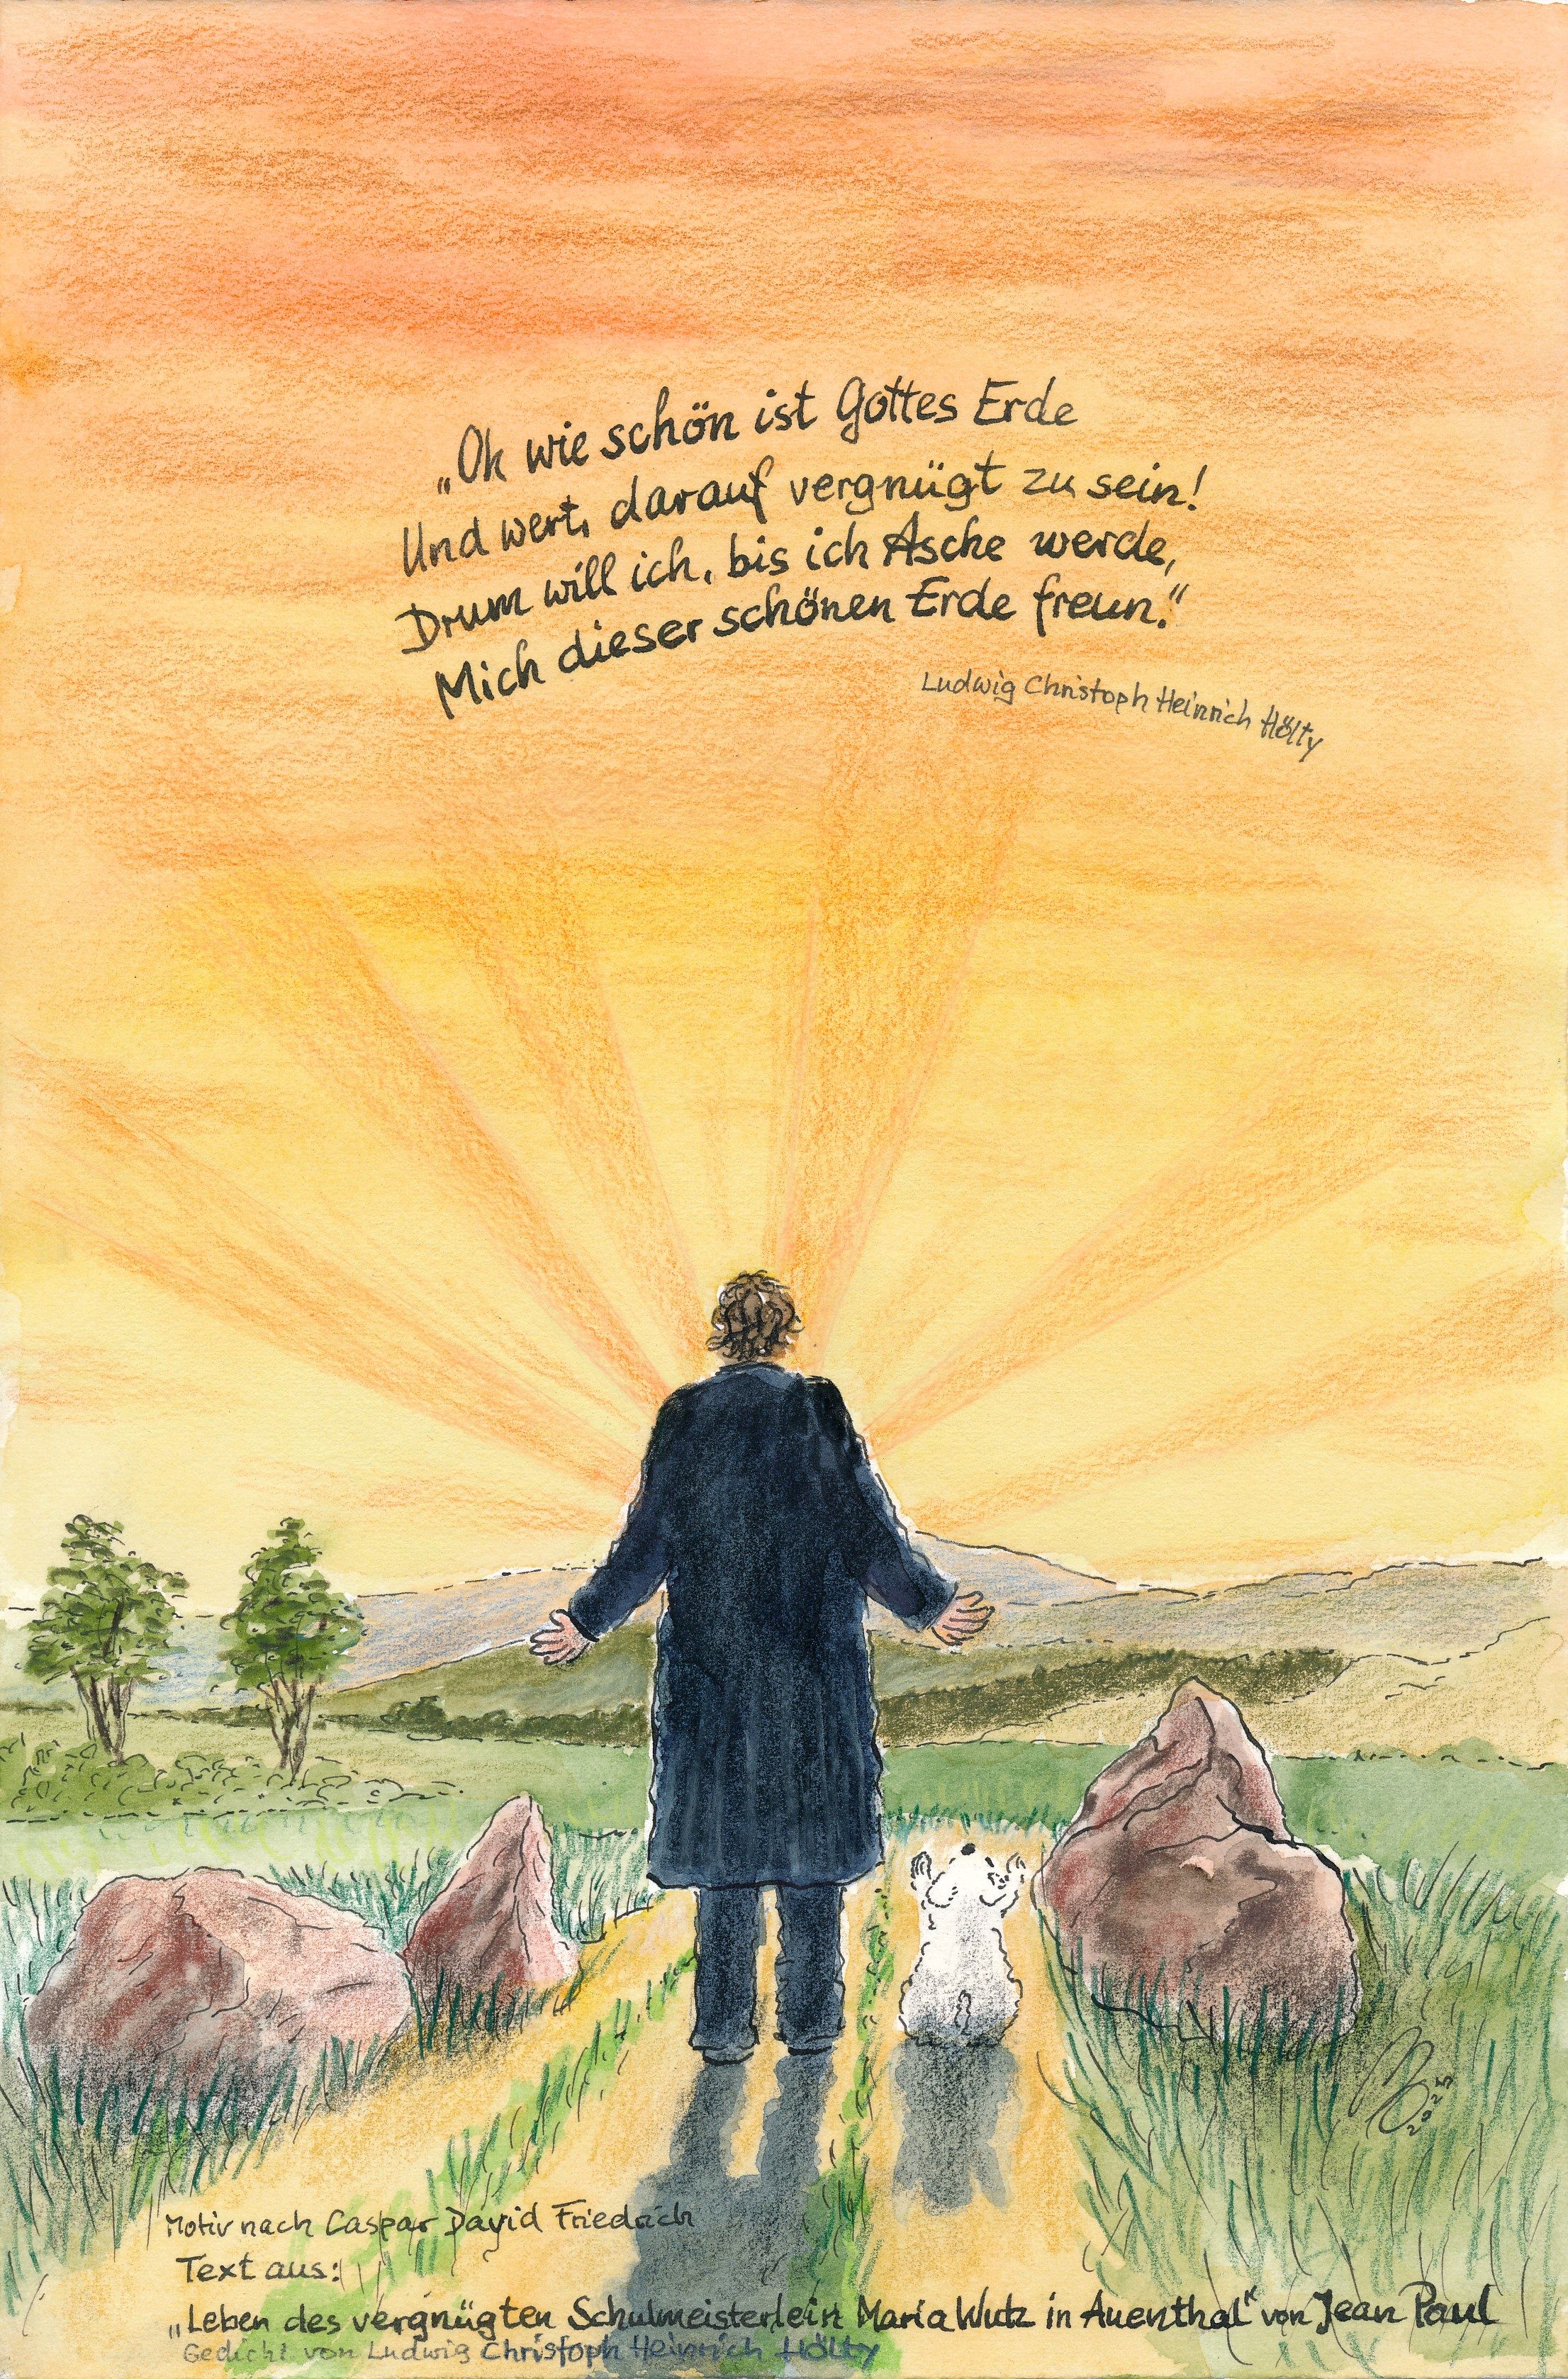 „Oh wie schön ist Gottes Erde
Und wert, darauf vergnügt zu sein!
Drum will ich, bis ich Asche werde,
Mich dieser schönen Erde freun."
Ludwig Christoph Heinrich Hölty
2025
Motiv nach Caspar David Friedrich
Text aus:
„Leben des vergnügten Schulmeisterlein Maria Wutz in Auenthal" von Jean Paul
Gedicht von Ludwig Christoph Heinrich Hölty